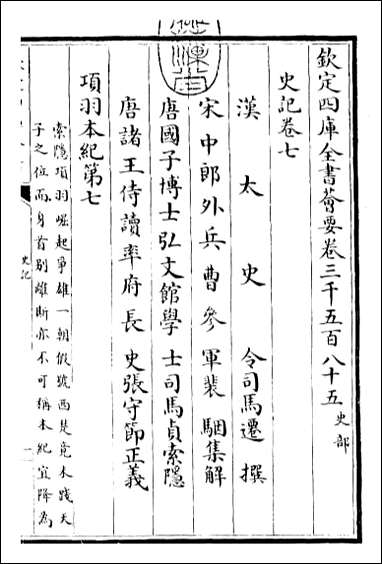 欽定四庫全書薈要卷三千五百八十五 史部
史記卷七
漢 太 史 令司馬遷 撰
宋 中郎外兵曹參 軍裴 駰集解
唐國子博士弘文館學 士司馬貞索隱
唐諸王侍讀率府長 史張守節正義
項羽本紀第七
索隱項羽崛起爭雄一朝假號西楚竟未踐天
子之位而身首別離斯亦不可稱本紀宜降為
史記